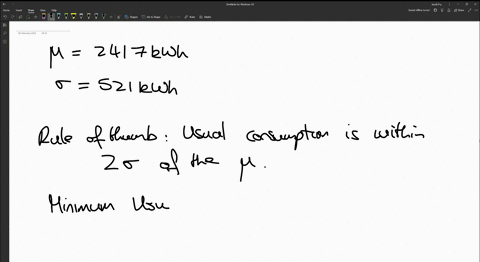 μ = 2417 kWh
σ = 521 kWh
Rule of thumb: Usual consumption is within
2σ of the μ.
Minimum Usu